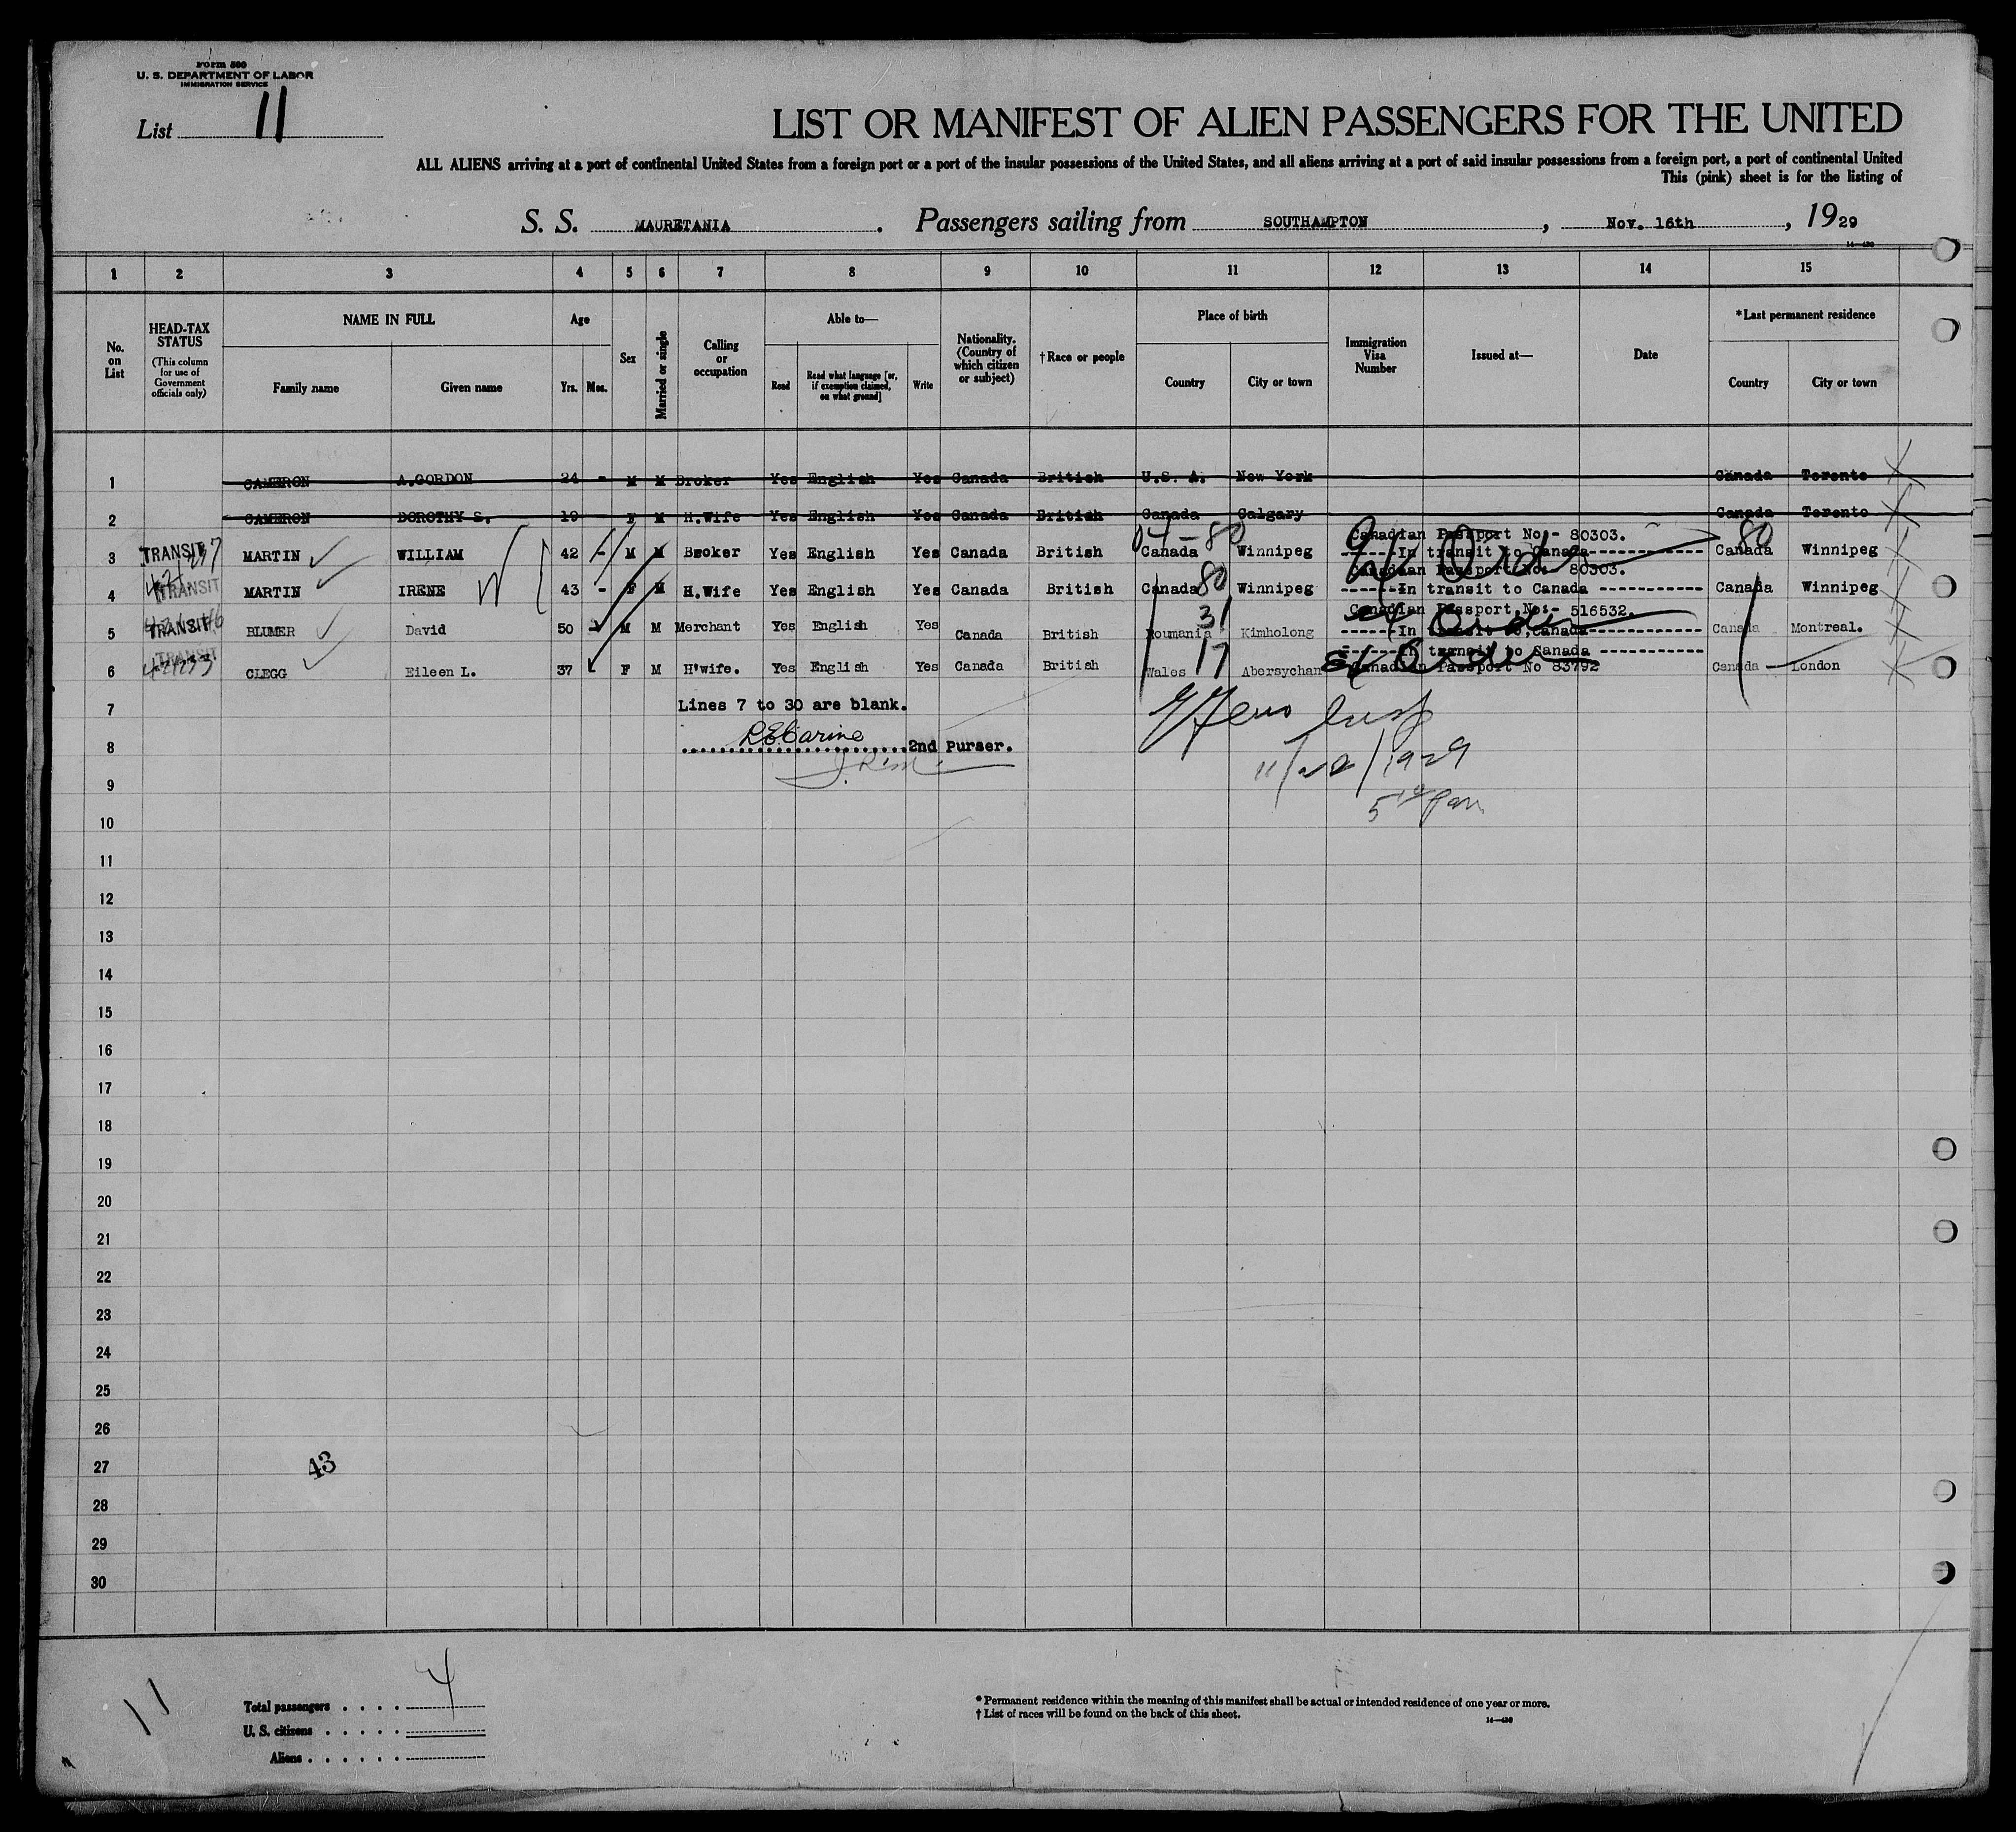 Form 500
U. S. DEPARTMENT OF LABOR
IMMIGRATION SERVICE
List 11
LIST OR MANIFEST OF ALIEN PASSENGERS FOR THE UNITED
ALL ALIENS arriving at a port of continental United States from a foreign port or a port of the insular possessions of the United States, and all aliens arriving at a port of said insular possessions from a foreign port, a port of continental United
This (pink) sheet is for the listing of
S. S. MAURETANIA . Passengers sailing from SOUTHAMPTON , Nov. 16th , 1929
1 2 3 4 5 6 7 8 9 10 11 12 13 14 15
No. on List
HEAD-TAX STATUS (This column for use of Government officials only)
NAME IN FULL
Family name Given name
Age
Yrs. Mos.
Sex
Married or single
Calling or occupation
Able to—
Read Read what language [or, if exemption claimed, on what ground] Write
Nationality. (Country of which citizen or subject)
†Race or people
Place of birth
Country City or town
Immigration Visa Number
Issued at—
Date
*Last permanent residence
Country City or town
1 CAMERON A.GORDON 24 - M M Broker Yes English Yes Canada British U.S. A. New York Canada Toronto
2 CAMERON DOROTHY S. 19 F M H.Wife Yes English Yes Canada British Canada Calgary Canada Toronto
04-80 Canadian Passport No:- 80303. 80
3 TRANSIT MARTIN WILLIAM 42 - M M Broker Yes English Yes Canada British Canada Winnipeg ------In transit to Canada------ Canada Winnipeg
80 Canadian Passport No:- 80303.
4 TRANSIT MARTIN IRENE 43 - F M H.Wife Yes English Yes Canada British Canada Winnipeg ------In transit to Canada ------ Canada Winnipeg
31 Canadian Passport No:- 516532.
5 TRANSIT BLUMER David 50 M M Merchant Yes English Yes Canada British Roumania Kimholong ------In transit to Canada------ Canada Montreal.
17 ------In transit to Canada ------
6 TRANSIT CLEGG Eileen L. 37 F M H'wife. Yes English Yes Canada British Wales Abersychan Canadian Passport No 83792 Canada London
7 Lines 7 to 30 are blank.
8 2nd Purser.
11/22/1929
9
10
11
12
13
14
15
16
17
18
19
20
21
22
23
24
25
26
27
43
28
29
30
11
Total passengers . . . . 4
U. S. citizens . . . . .
Aliens . . . . . .
* Permanent residence within the meaning of this manifest shall be actual or intended residence of one year or more.
† List of races will be found on the back of this sheet.